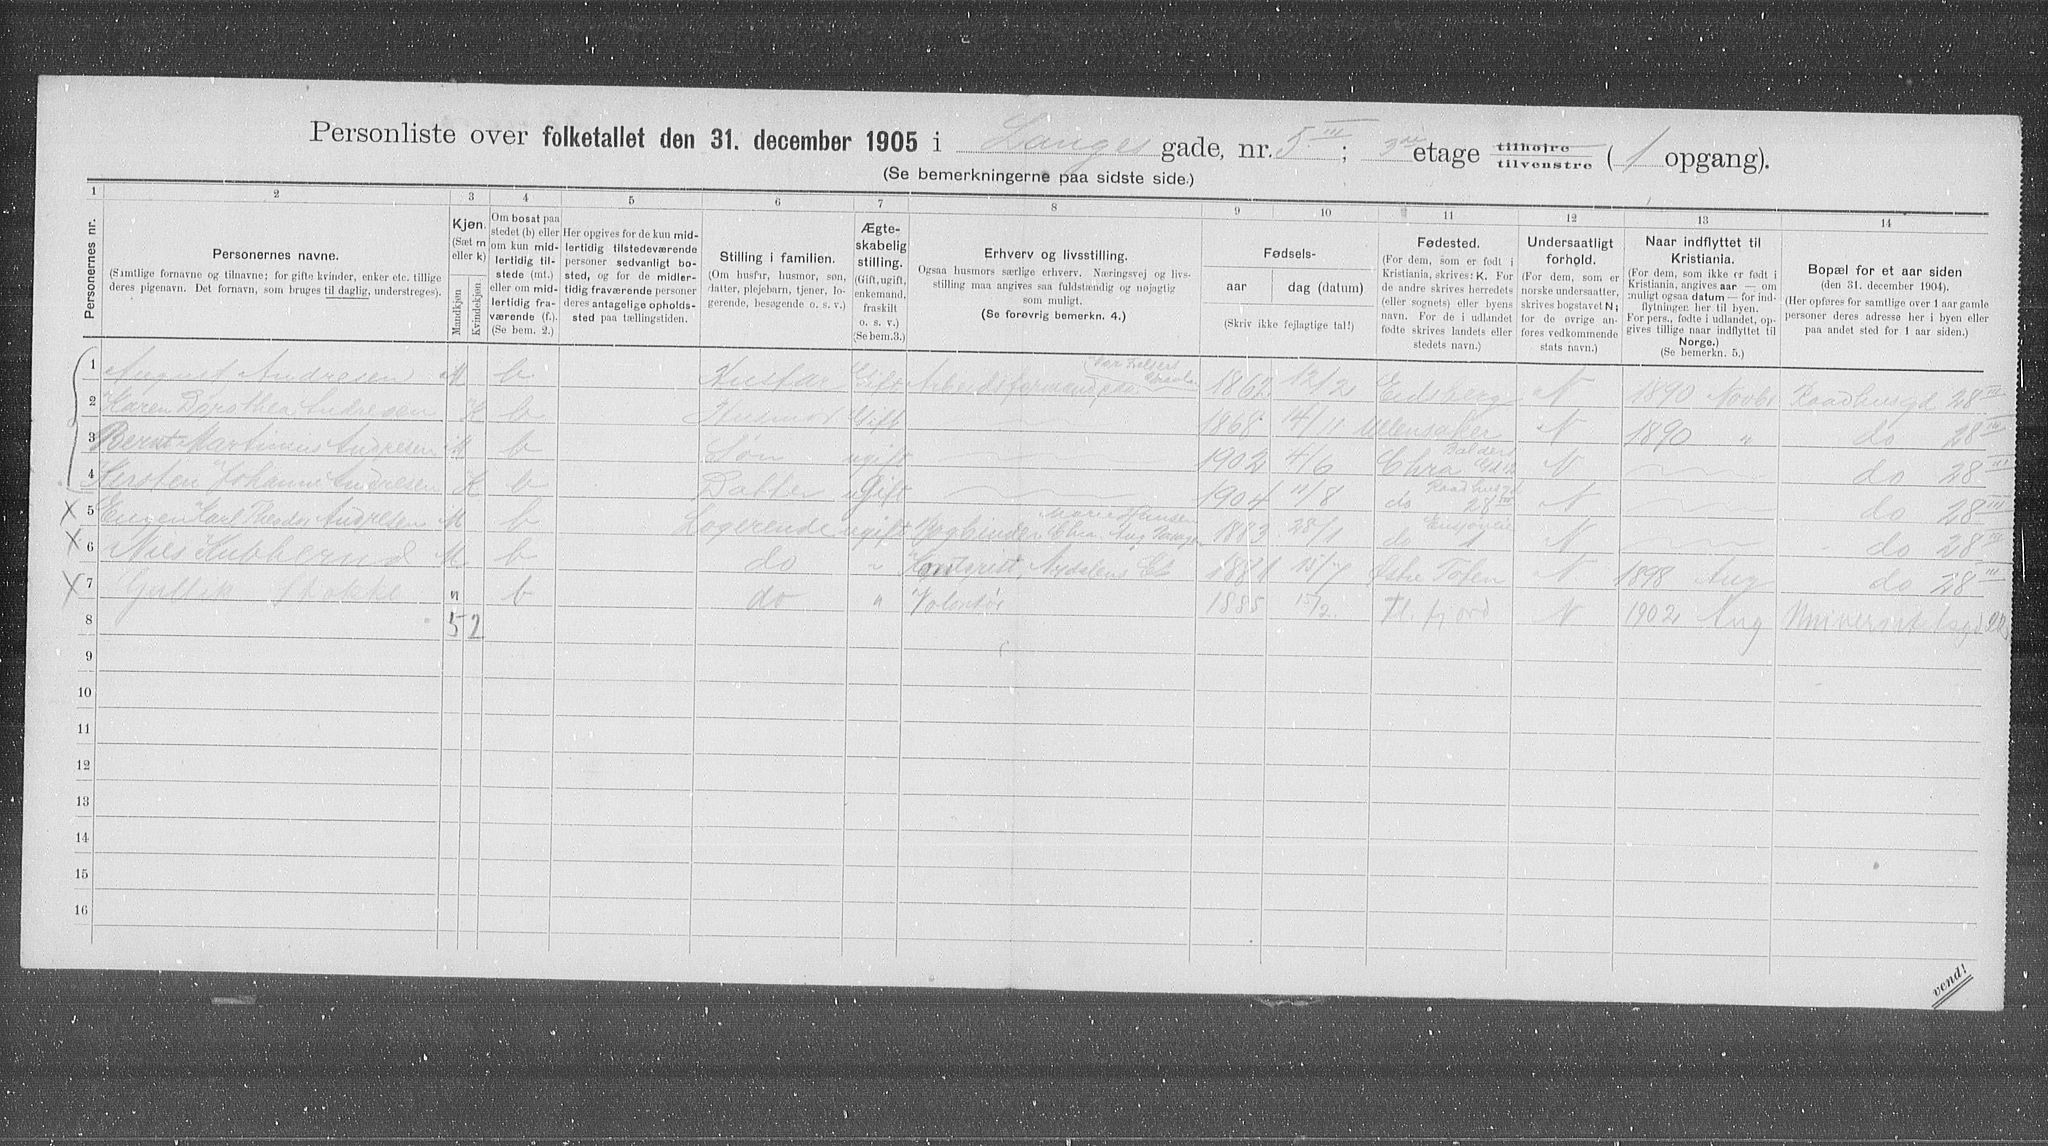 Personliste over folketallet den 31. december 1905 i Langes gade, nr. 5 III; 3die etage tilhøjre tilvenstre (1 opgang).
(Se bemerkningerne paa sidste side.)
1 2 3 4 5 6 7 8 9 10 11 12 13 14
Personernes nr.
Personernes navne.
(Samtlige fornavne og tilnavne; for gifte kvinder, enker etc. tillige
deres pigenavn. Det fornavn, som bruges til daglig, understreges).
Kjøn.
(Sæt m
eller k)
Mandkjøn
Kvindekjøn
Om bosat paa
stedet (b) eller
om kun mid-
lertidig til-
stede (mt.)
eller om mid-
lertidig fra-
værende (f.).
(Se bem. 2.)
Her opgives for de kun mid-
lertidig tilstedeværende
personer sedvanlig bo-
sted, og for de midler-
tidig fraværende personer
deres antagelige opholds-
sted paa tællingstiden.
Stilling i familien.
(Om husfar, husmor, søn,
datter, plejebarn, tjener, lo-
gerende, besøgende o. s. v.)
Ægte-
skabelig
stilling.
(Gift, ugift,
enkemand,
fraskilt
o. s. v.)
(Se bem.3.)
Erhverv og livsstilling.
Ogsaa husmors særlige erhverv. Næringsvej og livs-
stilling maa angives saa fuldstændig og nøjagtig
som muligt.
(Se forøvrig bemerkn. 4.)
Fødsels-
aar
dag (datum)
(Skriv ikke fejlagtige tal!)
Fødested.
(For dem, som er født i
Kristiania, skrives: K. For
de andre skrives herredets
(eller sognets) eller byens
navn. For de i udlandet
fødte skrives landets eller
stedets navn.)
Undersaatligt
forhold.
(For dem, som er
norske undersaatter,
skrives bogstavet N;
for de øvrige an-
føres vedkommende
stats navn.)
Naar indflyttet til
Kristiania.
(For dem, som ikke er født i
Kristiania, angives aar — om
muligt ogsaa datum — for ind-
flytningen her til byen.
For pers., fødte i udlandet, op-
gives tillige naar indflyttet til
Norge.)
(Se bemerkn. 5.)
Bopæl for et aar siden
(den 31. december 1904).
(Her opføres for samtlige over 1 aar gamle
personer deres adresse her i byen eller
paa andet sted for 1 aar siden.)
1 August Andresen M b Husfar Gift Arbeidsformand paa 1862 12/2 Eidsberg N 1890 Novbr Raadhusgd 28 III
2 Karen Dorothea Andresen K b Husmor Gift 1868 14/11 Ullensaker N 1890 " do 28 III
3 Bernt Martinius Andresen M b Søn ugift 1902 4/6 Chra N do 28 III
4 Kirsten Johanne Andresen K b Datter ugift 1904 11/8 do Raadhusgd 28 III N do 28 III
5 Eugen Karl Theodor Andresen M b Logerende ugift Bogbinder Chra 1883 28/1 do N do 28 III
6 Nils Kubberud M b do " Kontorist, Nydalens Co 1881 15/7 Østre Toten N 1898 Aug do 28 III
7 Gullik Stokke m b do " Volontør 1885 15/2 N 1902 Aug Universitetsgd
8 5 2
9
10
11
12
13
14
15
16
vend!